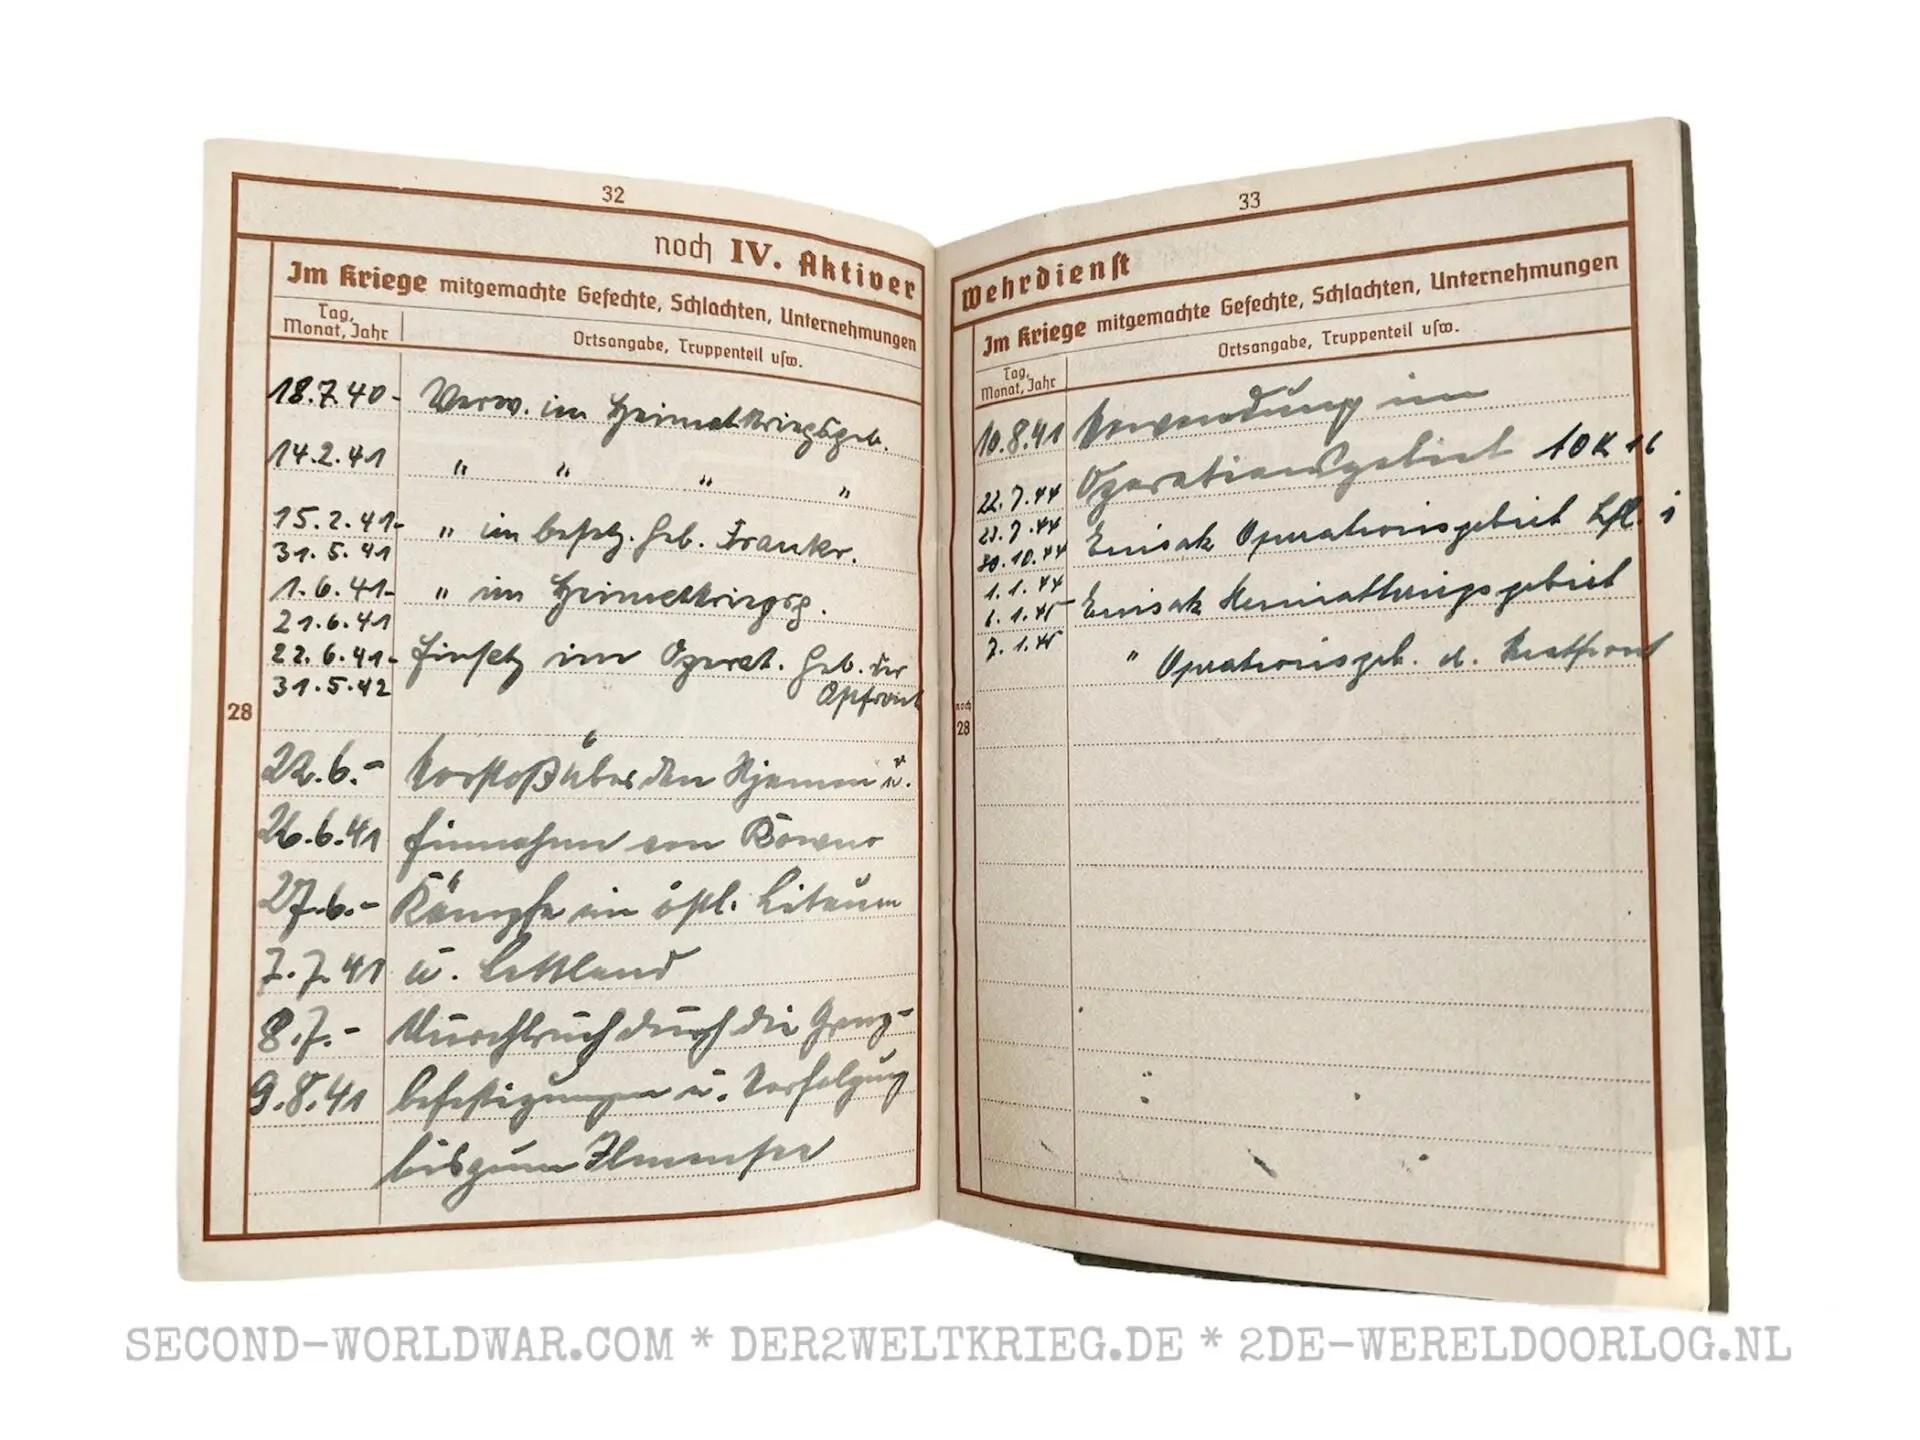 32
noch IV. Aktiver
Im Kriege mitgemachte Gefechte, Schlachten, Unternehmungen
Tag,
Monat, Jahr
Ortsangabe, Truppenteil usw.
28
18.7.40- Verw. im Heimatkriegsgeb.
14.2.41 " " " "
15.2.41- " im besetz. Geb. Frankr.
31.5.41
1.6.41- " im Heimatkriegsg.
21.6.41
22.6.41- Einsatz im Operat. Geb. der
31.5.42 Ostfront
22.6.- Vorstoß über den Njemen u.
26.6.41 Einnahme von Kowno
27.6.- Kämpfe im östl. Litauen
7.7.41 u. Lettland
8.7.- Durchbruch durch die Grenz-
9.8.41 befestigungen u. Verfolgung
bis zum Ilmensee
33
Wehrdienst
Im Kriege mitgemachte Gefechte, Schlachten, Unternehmungen
Tag,
Monat, Jahr
Ortsangabe, Truppenteil usw.
noch
28
10.8.41 Verwendung im
22.7.44 Operationsgebiet
23.7.44 Einsatz Operationsgebiet Lfl.
30.10.44
1.1.44 Einsatz Heimatkriegsgebiet
6.1.45
7.1.45 " Operationsgeb. d. Westfront
SECOND-WORLDWAR.COM * DER2WELTKRIEG.DE * 2DE-WERELDOORLOG.NL